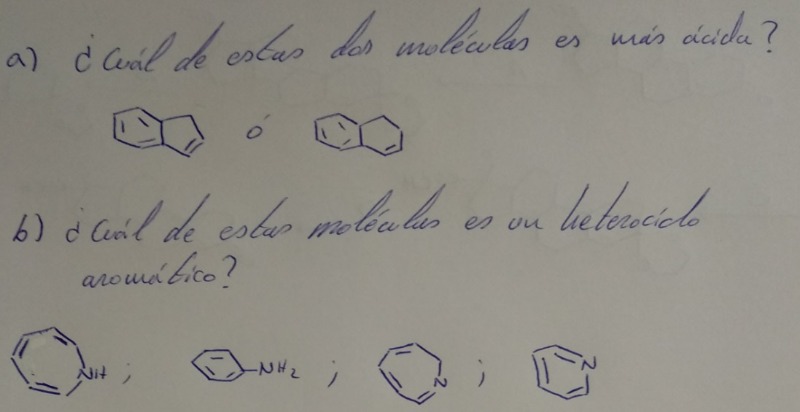 a) ¿Cuál de estas dos moléculas es más ácida?
ó
b) ¿Cuál de estas moléculas es un heterociclo
aromático?
NH ; NH2 ; N ; N